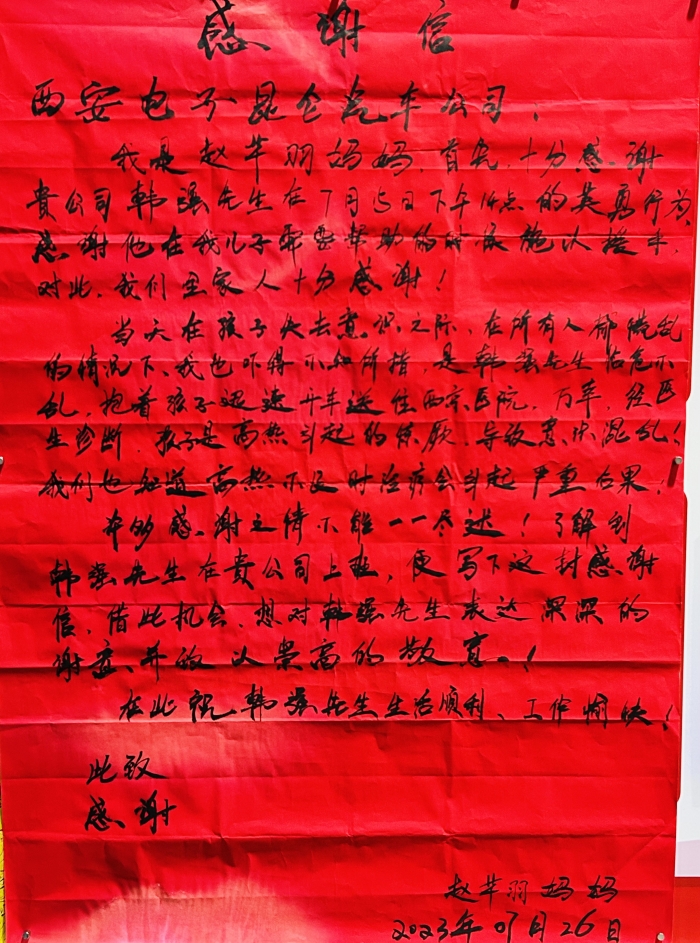 感谢信
西安电子昆仑汽车公司、
我是赵芊羽妈妈,首先,十分感谢
贵公司韩强先生在7月15日下午14点的英勇行为,
感谢他在我儿子需要帮助的时候施以援手,
对此,我们全家人十分感谢!
当天在孩子失去意识之际,在所有人都慌乱
的情况下、我也吓得不知所措,是韩强先生临危不
乱,抱着孩子迅速开车送往西京医院,万幸,经医
生诊断,孩子是高热引起的惊厥,导致意识混乱!
我们也知道高热不及时治疗会引起严重后果,
千般感谢之情不能一一尽述!了解到
韩强先生在贵公司上班,便写下这封感谢
信,借此机会,想对韩强先生表达深深的
谢意、并致以崇高的敬意。!
在此祝韩强先生生活顺利、工作愉快!
此致
感谢
赵芊羽妈妈
2023年07月26日